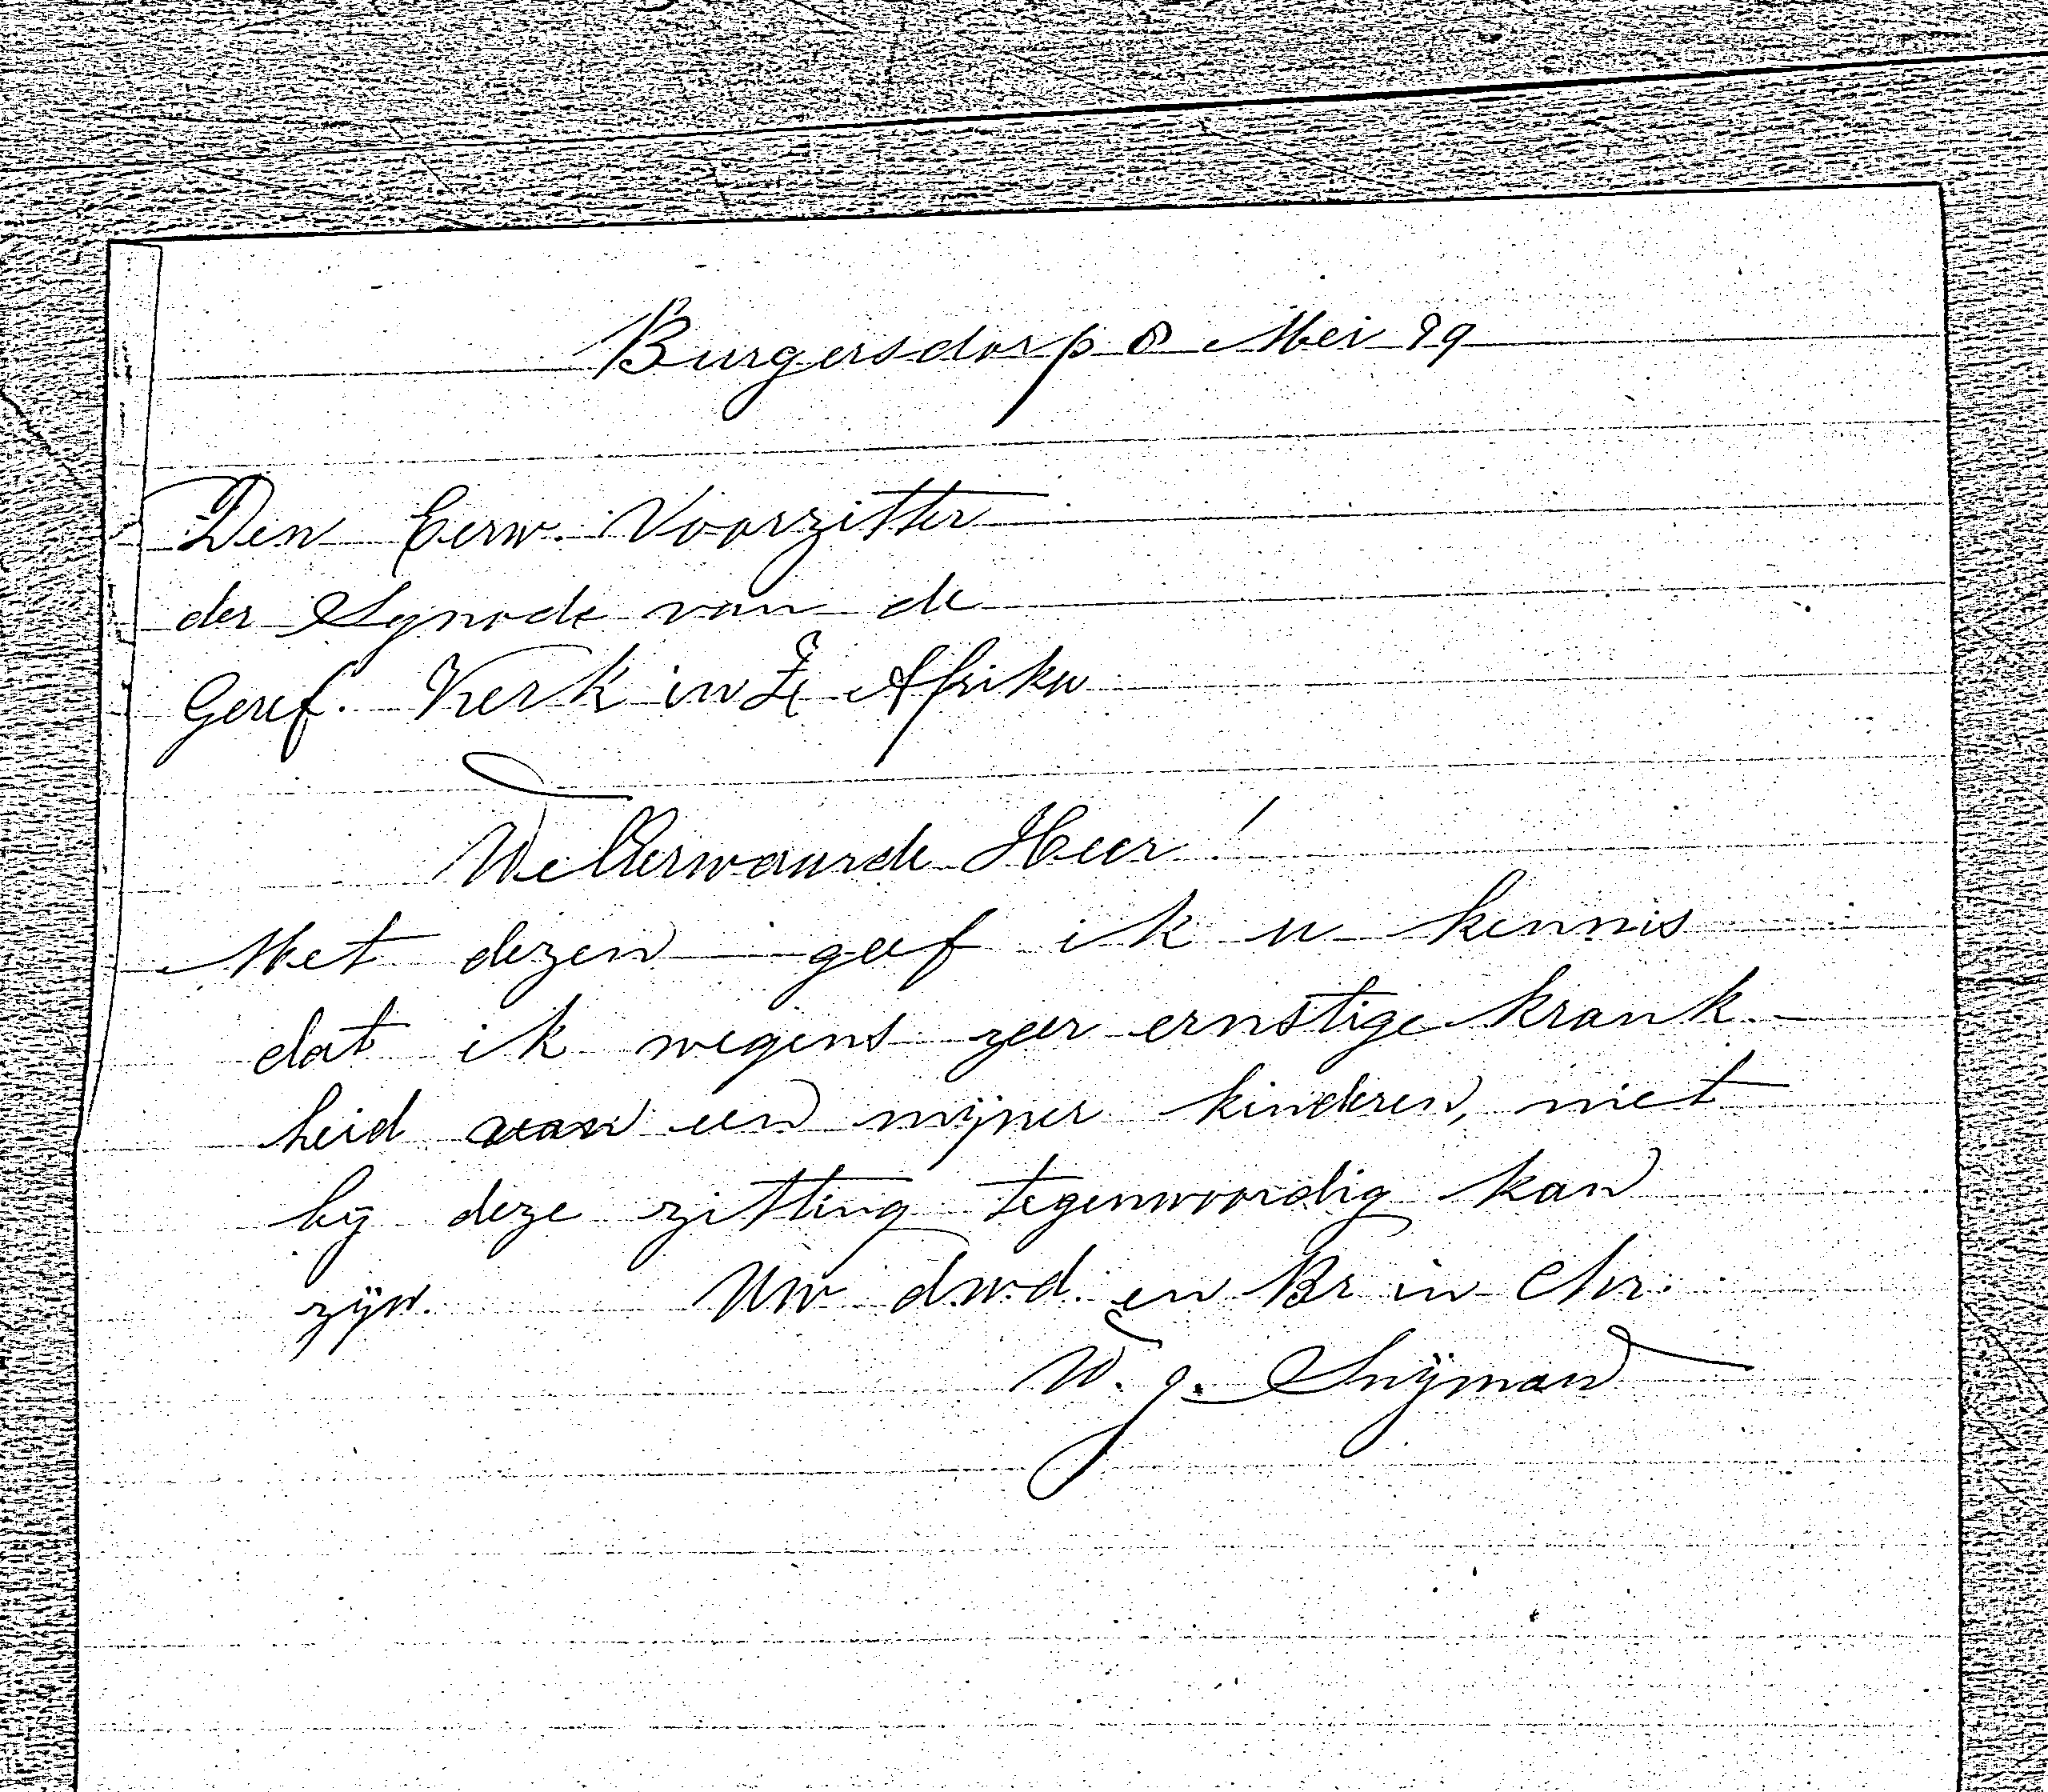 Burgersdorp 8 Mei 99
Den Eerw. Voorzitter
der Synode van de
Geref. Kerk in Z. Afrika
WelEerwaarde Heer!
Met dezen geef ik u kennis
dat ik wegens zeer ernstige krank-
heid van een mijner kinderen, niet
bij deze zitting tegenwoordig kan
zijn. Uw dwd. en Br in Chr.
W. J. Snijman